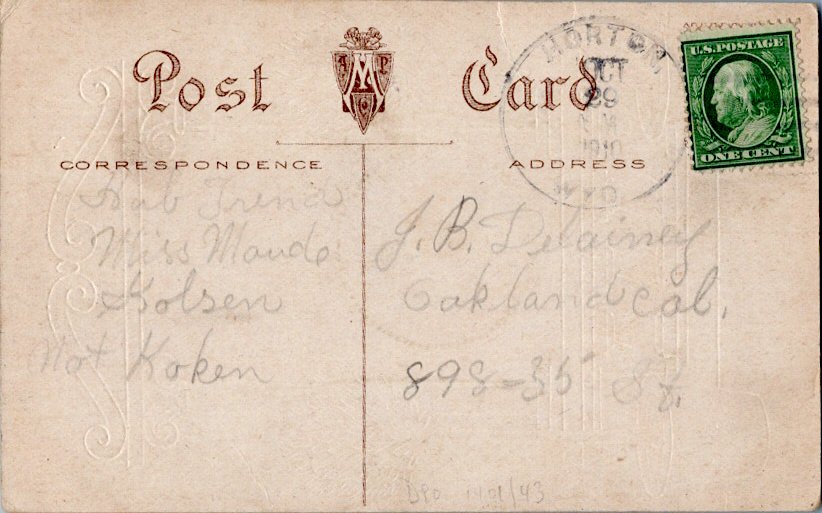 Post Card
A M P C
CORRESPONDENCE
ADDRESS
MORTON
OCT
29
1910
WYO.
U.S. POSTAGE
ONE CENT
Miss Maude
Kolsen
Not Koken
J. B. Delainey
Oakland Cal.
898-35 St.
DPO /43